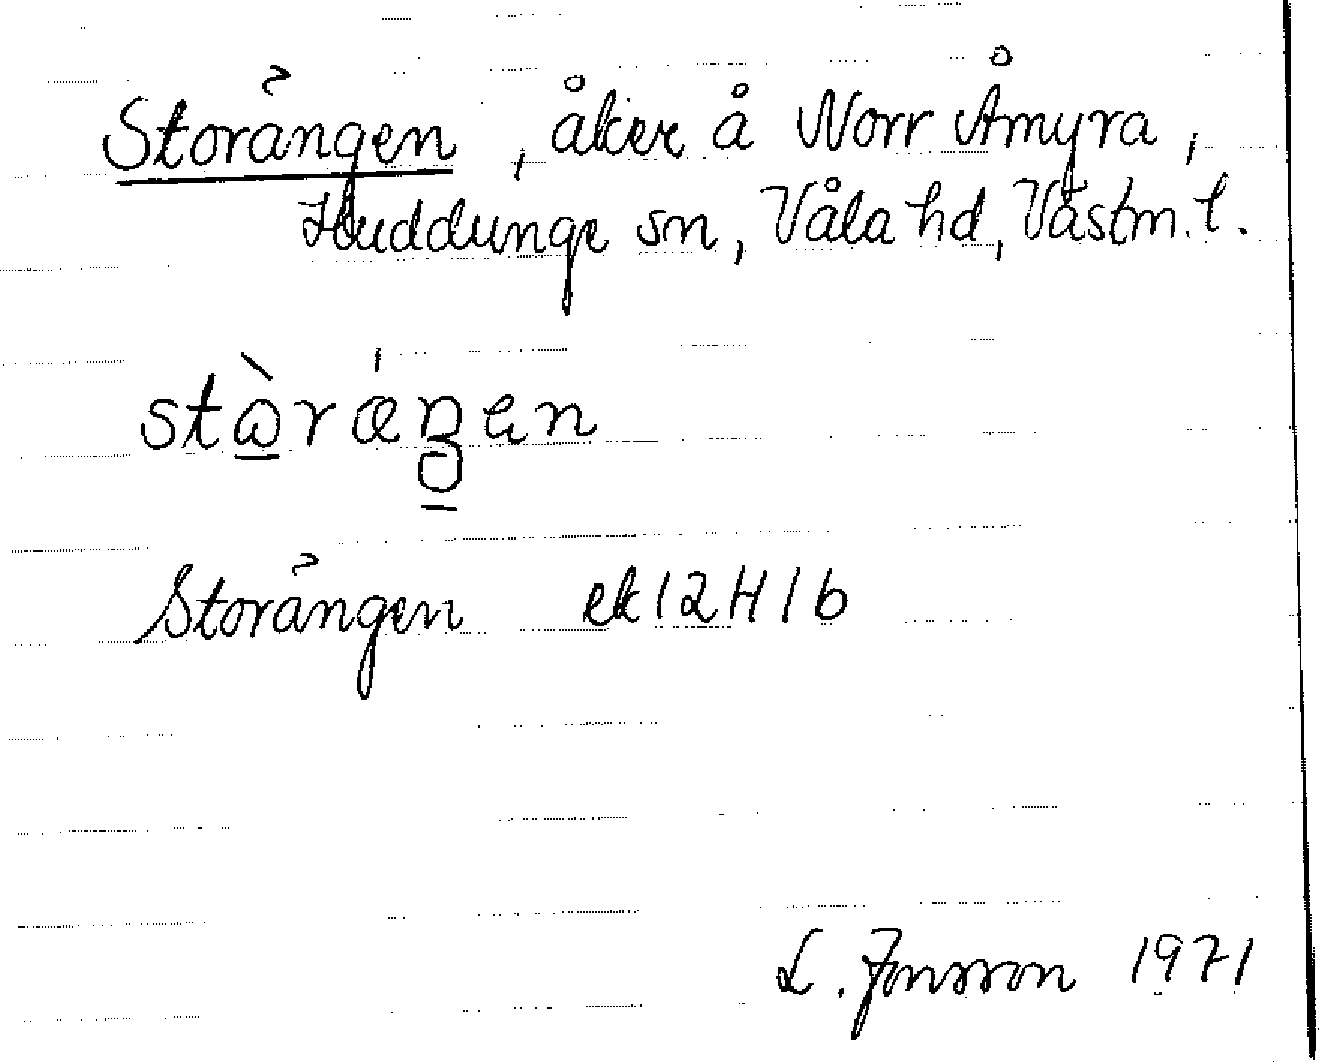 Storängen, åker å Norr Åmyra,
Huddunge sn, Våla hd, Västm. l.
Storängen ek 12H1b
L. Jonsson 1971